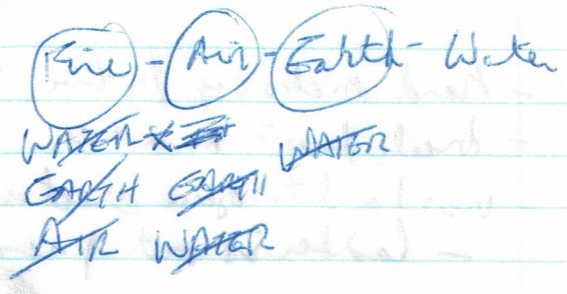 Fire - Air - Earth - Water
WATER WATER
EARTH EARTH
AIR WATER